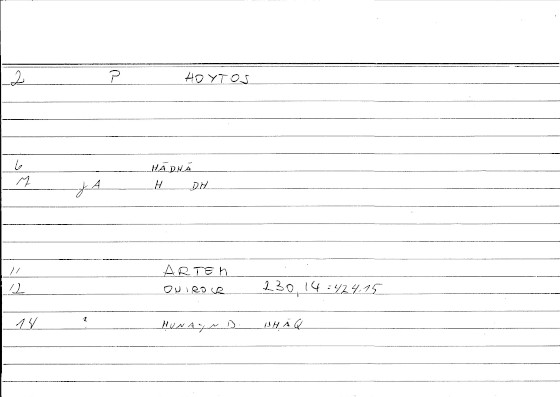 2 P HOYTOS
6 HĀDHĀ
M γA H DH
11 ARTEM
12 OVIROCE 230,14 = 424.15
14 " HUNAYN B. ISHĀQ